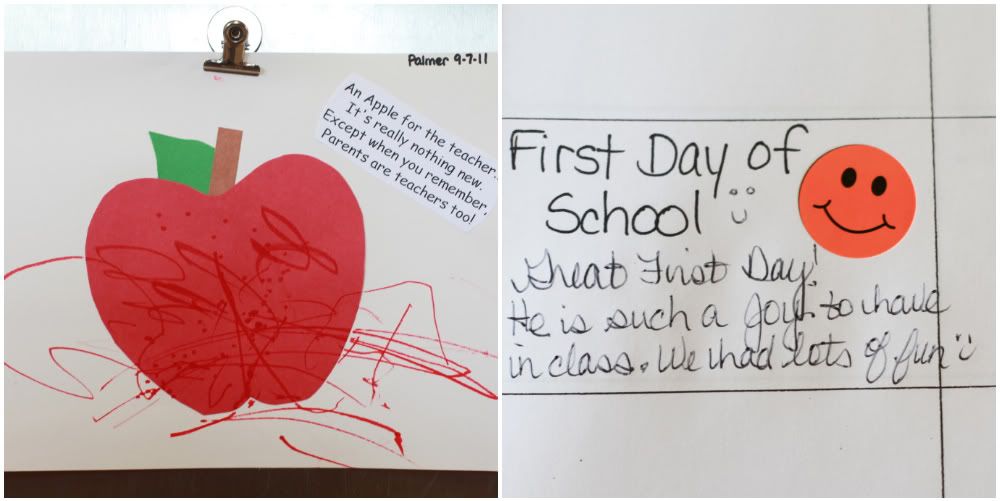 Palmer 9-7-11
An Apple for the teacher...
It's really nothing new.
Except when you remember,
Parents are teachers too!
First Day of
School
Great First Day!
He is such a joy to have
in class. We had lots of fun